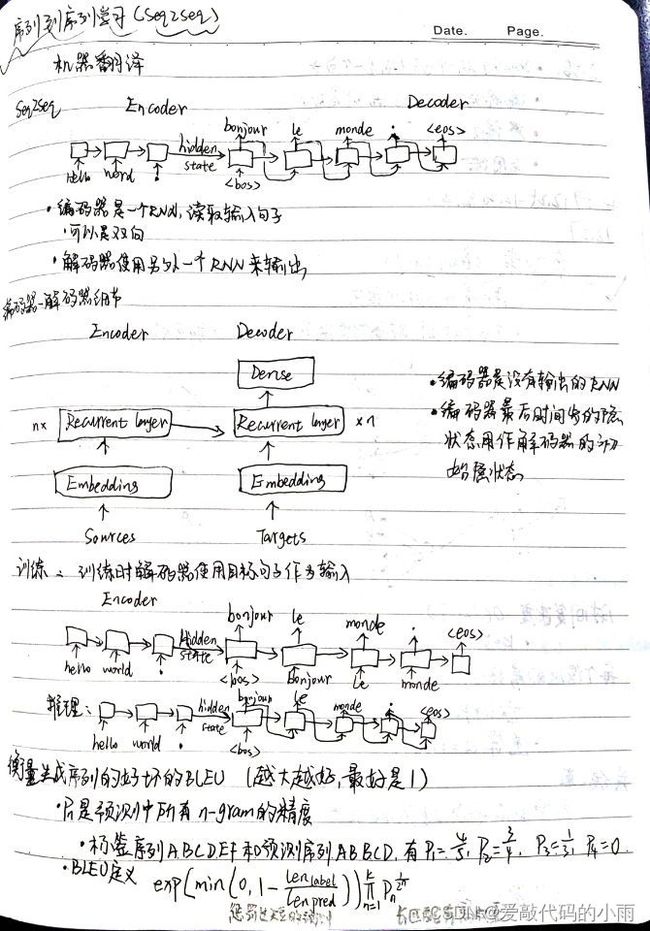 序列到序列学习(Seq2seq)
Date. Page.
机器翻译
Seq2seq Encoder Decoder
bonjour le monde . <eos>
hidden state
hello word . <bos>
·编码器是一个RNN,读取输入句子
·可以是双向
·解码器使用另外一个RNN来输出
编码器-解码器细节
Encoder Decoder
Dense
n× Recurrent layer Recurrent layer ×n
Embedding Embedding
Sources Targets
·编码器是没有输出的RNN
·编码器最后时间步的隐
状态用作解码器的初
始隐状态
训练:训练时解码器使用目标句子作为输入
Encoder
bonjour le monde . <eos>
hidden state
hello world . <bos> Bonjour le monde .
推理:
bonjour le monde . <eos>
hidden state
hello world . <bos>
衡量生成序列的好坏的BLEU (越大越好,最好是1)
·Pn是预测中所有n-gram的精度
·标签序列ABCDEF和预测序列ABBCD,有P₁=4/5, P₂=3/4, P₃=1/3, P₄=0
·BLEU定义
exp(min(0,1-len label/len pred))∏ᵏₙ₌₁Pn^(1/2ⁿ)
惩罚过短的预测
CSDN @爱敲代码的小雨